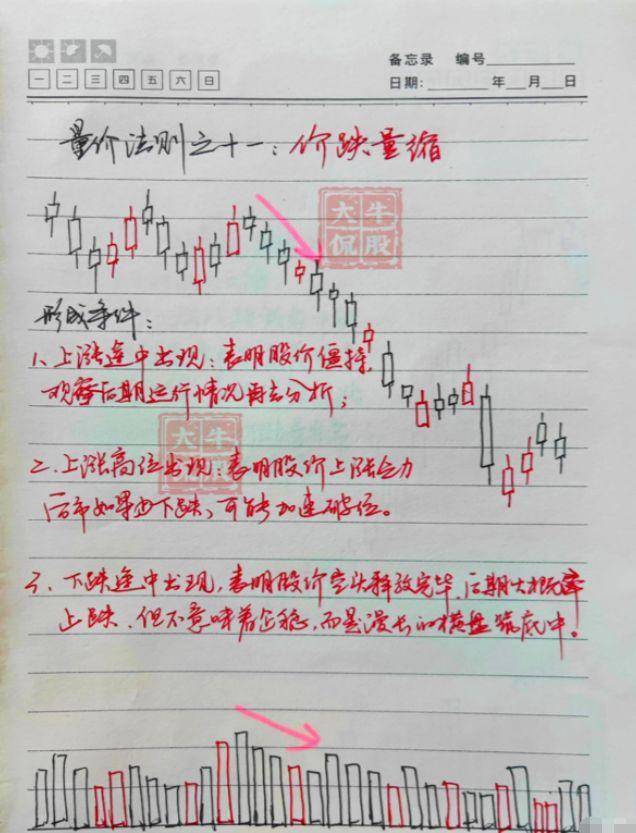 备忘录 编号
一 二 三 四 五 六 日
日期: 年 月 日
量价法则之十一：价跌量缩
大牛
侃股
形成条件：
1、上涨途中出现：表明股价僵持，
观察后期运行情况再去分析；
大牛
侃股
2、上涨高位出现：表明股价上涨乏力
后市如果由下跌、可能加速破位。
3、下跌途中出现，表明股价空头释放完毕，后期大概率
止跌、但不意味着企稳，而是漫长的横盘筑底中！